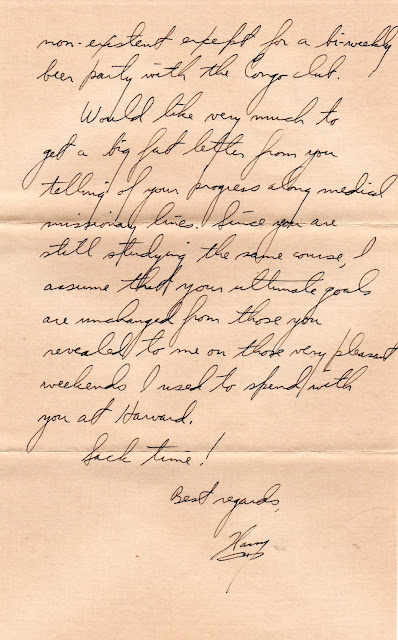 non-existent except for a bi-weekly
beer party with the Congo club.
Would like very much to
get a big fat letter from you
telling of your progress along medical
missionary lines. Since you are
still studying the same course, I
assume that your ultimate goals
are unchanged from those you
revealed to me on those very pleasant
weekends I used to spend with
you at Harvard.
Sack time!
Best regards,
Harry